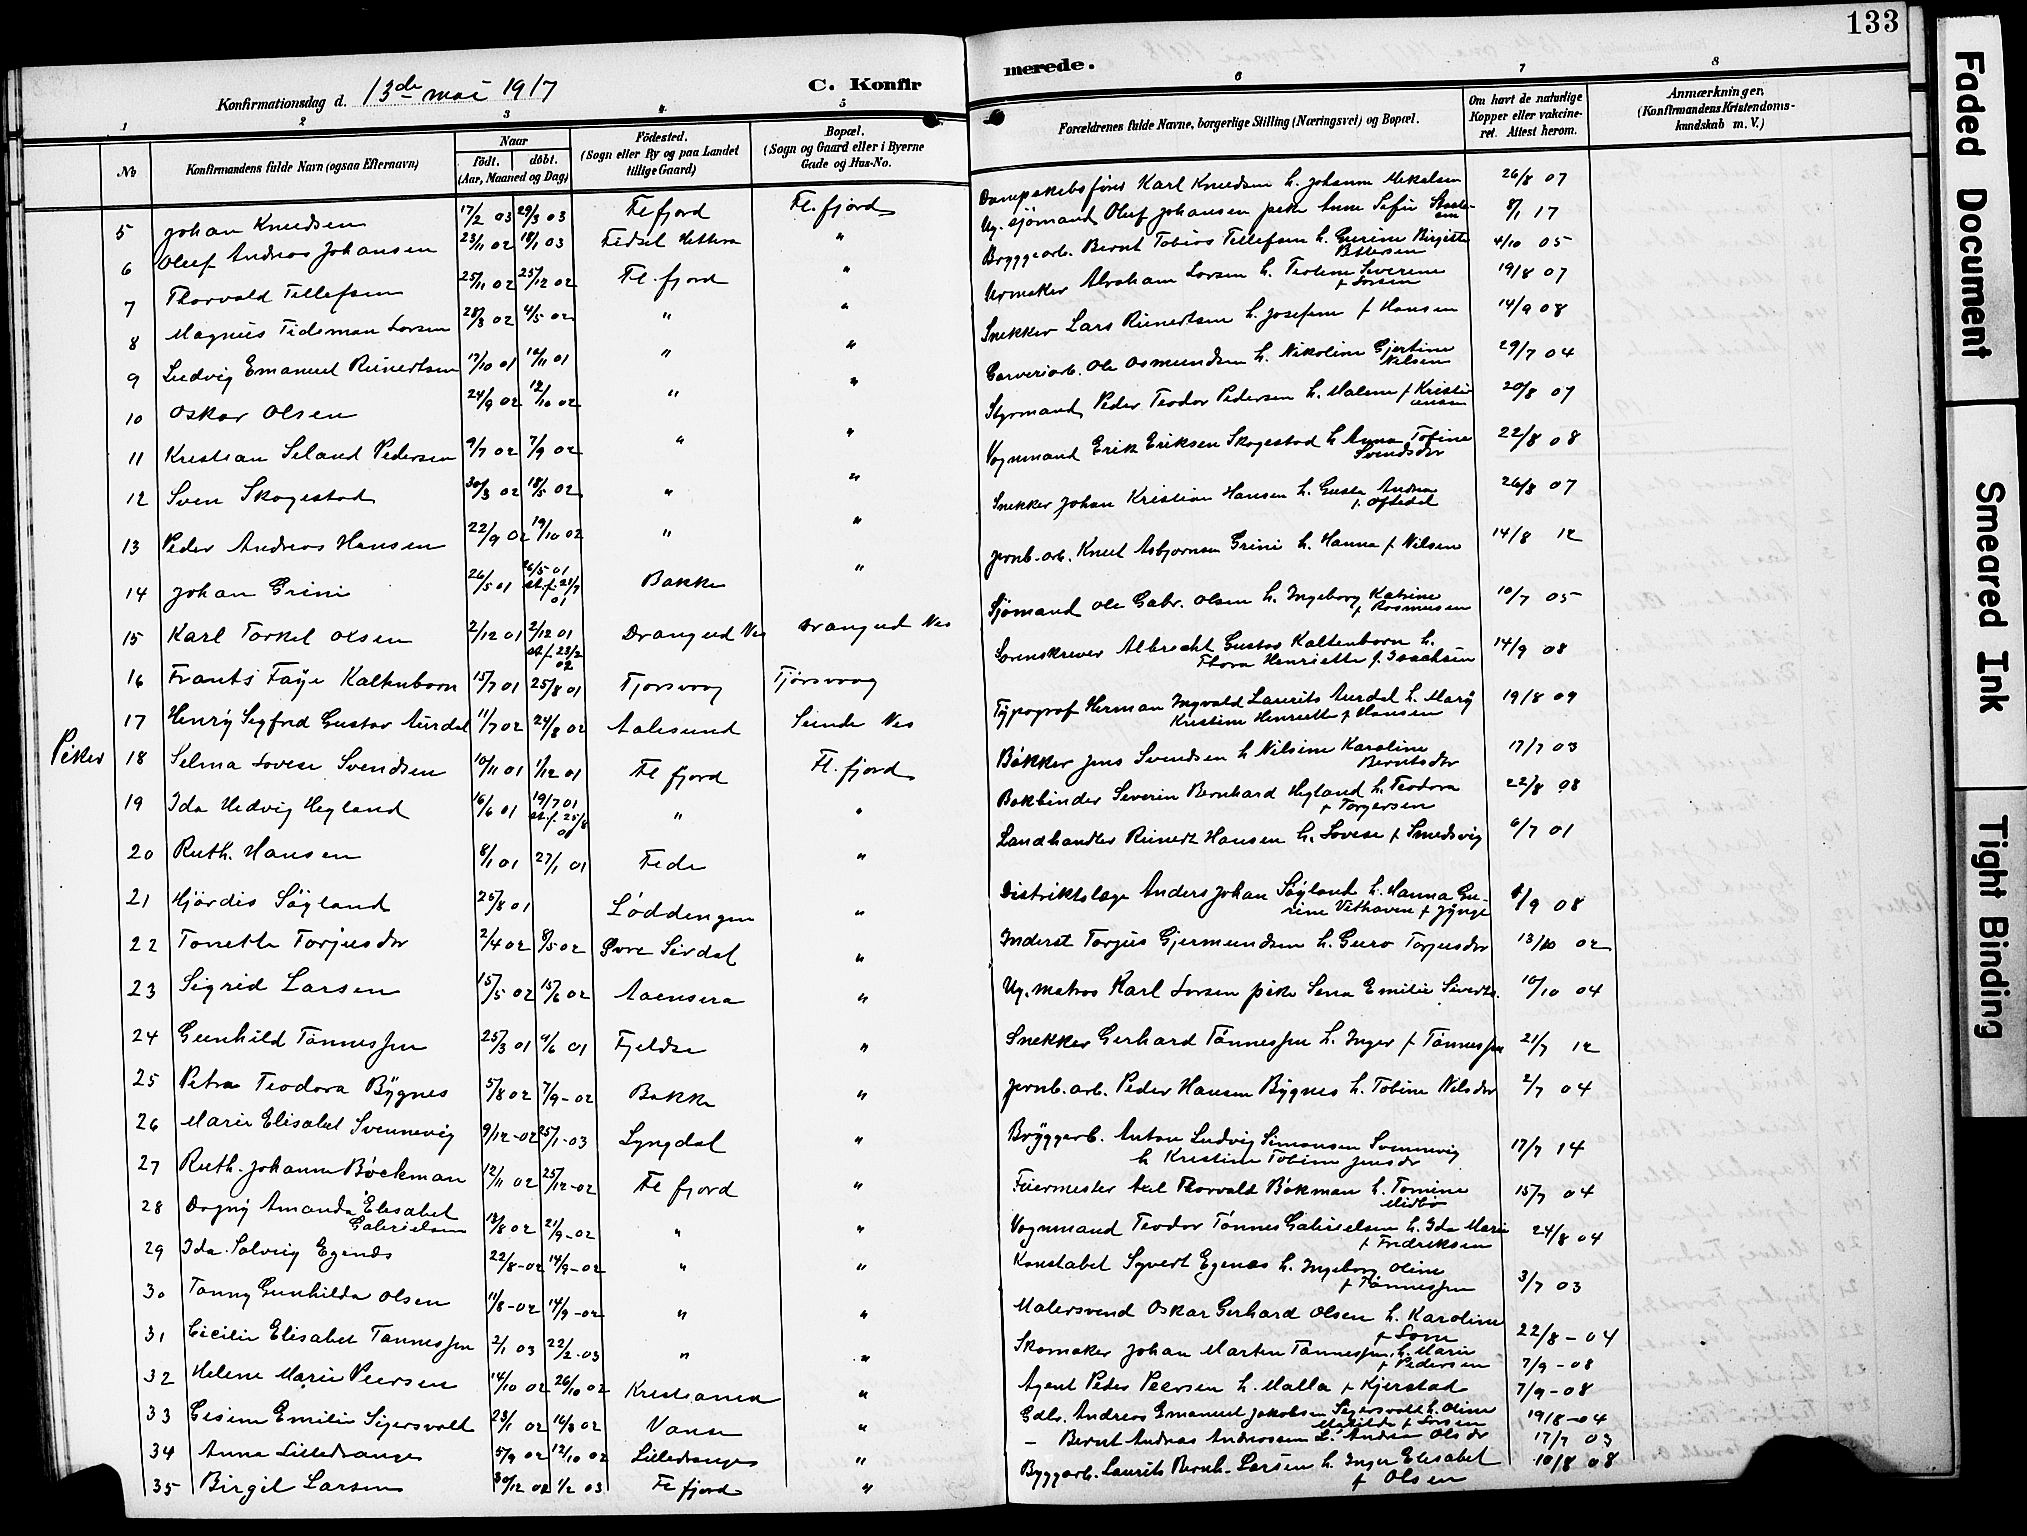 133
Konfirmationsdag d. 13de mai 1917
C. Konfirmerede.
1 2 3 4 5 6 7 8
No
Konfirmandens fulde Navn (ogsaa Efternavn)
Naar født. døbt. (Aar, Maaned og Dag)
Fødested. (Sogn eller By og paa Landet tillige Gaard)
Bopæl. (Sogn og Gaard eller i Byerne Gade og Hus-No.
Forældrenes fulde Navne, borgerlige Stilling (Næringsvei) og Bopæl.
Om havt de naturlige Kopper eller vakcineret. Attest herom.
Anmærkninger. (Konfirmandens Kristendomskundskab m. V.)
5 Johan Knudsen 17/2 03 29/3 03 Flefjord Fl. fjord Dampskibsfører Karl Knudsen h. Johanne Mikalsen 26/8 07
6 Oluf Andreas Johansen 23/11 02 18/1 03 Fidsel Hettera " Ug. sjömand Oluf Johansen pike Anne Sofie 8/1 17
7 Thorvald Tellefsen 25/11 02 25/12 02 Fl. fjord " Bryggearb. Bernt Tobias Tellefsen h. Gurine Birgitte Pettersen 4/10 05
8 Magnus Tideman Larsen 28/3 02 4/5 02 " " Urmaker Abraham Larsen h. Teoline Severine f Larsen 19/8 07
9 Ludvig Emanuel Reinertsen 17/10 01 10/11 01 " " Snekker Lars Reinertsen h. Josefine f Hansen 14/9 08
10 Oskar Olsen 24/9 02 12/10 02 " " Garveriarb. Ole Osmundsen h. Nikoline Gjertine Nilsen 29/7 04
11 Kristian Seland Pedersen 9/7 02 7/9 02 " " Styrmand Peder Teodor Pedersen h. Malene f Kristiansen 20/8 07
12 Sven Skogestad 30/3 02 18/5 02 " " Vognmand Erik Eriksen Skogestad h Anna Tofine Svendsdr 22/8 08
13 Peder Andreas Hansen 22/9 02 19/10 02 " " Snekker Johan Kristian Hansen h. Gusta Andrea f. Oftedal 26/8 07
14 Johan Grini 26/5 01 26/5 01 st. f. 21/7 01 Bakke " Jernb. arb. Knut Asbjørnsen Grini h. Hanna f Nilsen 14/8 12
15 Karl Torkel Olsen 2/12 01 2/12 01 st. f. 23/2 02 Drangeid Nes Drangeid Nes Sjömand Ole Gabr. Olsen h. Ingeborg Katrine f Rasmusen 10/7 05
16 Frants Faye Kaltenborn 15/7 01 25/8 01 Tjorsvaag Tjørsvaag Sorenskriver Albrecht Gustav Kaltenborn h. Thora Henriette f. Isachsen 14/9 08
17 Henry Sigfred Gustav Aurdal 11/7 02 24/8 02 Aalesund Sunde Nes Typograf Herman Ingvald Laurits Aurdal h. Mary Kristine Henriette f Hansen 19/8 09
Piker
18 Selma Lovise Svendsen 10/11 01 1/12 01 Fl fjord Fl. fjord Bøkker Jens Svendsen h Nilsine Karoline Berntsdr 17/7 03
19 Ida Hedvig Hegland 16/6 01 19/7 01 st. f. 25/8 01 " " Bokbinder Severin Bernhard Hegland h. Teodora f Torgersen 22/8 08
20 Ruth. Hansen 8/1 01 27/1 01 Fede " Landhandler Reinert Hansen h. Lovise f Smedsvig 6/7 01
21 Hjördis Söyland 25/8 01 Løddingen " Distriktslæge Anders Johan Söyland h. Hanna Gurine Vethaven f Jynge 8/9 08
22 Tonette Torjusdr 2/4 02 8/5 02 Øvre Sirdal " Inderst Torjus Gjermundsen h. Guro Torjusdr 13/10 02
23 Sigrid Larsen 15/5 02 15/6 02 Aaensera " Ug. matros Karl Larsen pike Sina Emilie Sivertsen. 10/10 04
24 Gunhild Tönnessen 25/3 01 9/6 01 Fjeldse " Snekker Gerhard Tönnessen h. Inger f Tönnessen 21/7 12
25 Petra Teodora Bygnes 5/8 02 7/9-02 Bakke " Jernb. arb. Peder Hansen Bygnes h. Tobine Nilsdr 2/7 04
26 Marie Elisabet Svennevig 9/12-02 25/1-03 Lyngdal " Bryggerb. Anton Ludvig Simonsen Svennevig h Kristine Tobine Jensdr 17/7 14
27 Ruth. Johanne Böckman 12/11 02 25/12-02 Fl fjord " Feiermester Axel Thorvald Bökman h. Tomine Midbø 15/7 04
28 Dagny Amanda Elisabet Gabrielsen 18/8 02 21/9-02 " " Vognmand Teodor Tönnes Gabrielsen h. Ida Marie f Fredriksen 24/8 04
29 Ida Solveig Egenæs 22/8-02 14/9-02 " " Konstabel Syvert Egenæs h. Ingeborg Oline f Tönnessen 3/7 03
30 Tanny Gunhilda Olsen 11/8-02 14/9-02 " " Malersvend Oskar Gerhard Olsen h. Karoline f Lom 22/8-04
31 Cicilie Elisabet Tannessen 2/1 03 22/2-03 " " Skomaker Johan Marten Tannessen, h. Marie f Pedersen 7/9-08
32 Helene Marie Peersen 14/10 02 26/10 02 Kristiania " Agent Peder Peersen h. Malla f Kjerstad 7/9-08
33 Gesine Emilie Sigersvolt 23/1 02 16/3 02 Vanse " Gdbr. Andreas Emanuel Jakobsen Sigersvolt h. Oline Matilda f Larsen 19/8-04
34 Anna Lilledrange 5/9 02 12/10 02 Lilledrange " — Bernt Andreas Andreasen h. Andrea Olsdr 17/7 03
35 Birgit Larsen 30/12 02 1/2 03 Fl fjord " Byggarb. Laurits Bernh. Larsen h. Inger Elisabet f Olsen 10/8 08
Faded Document
Smeared Ink
Tight Binding